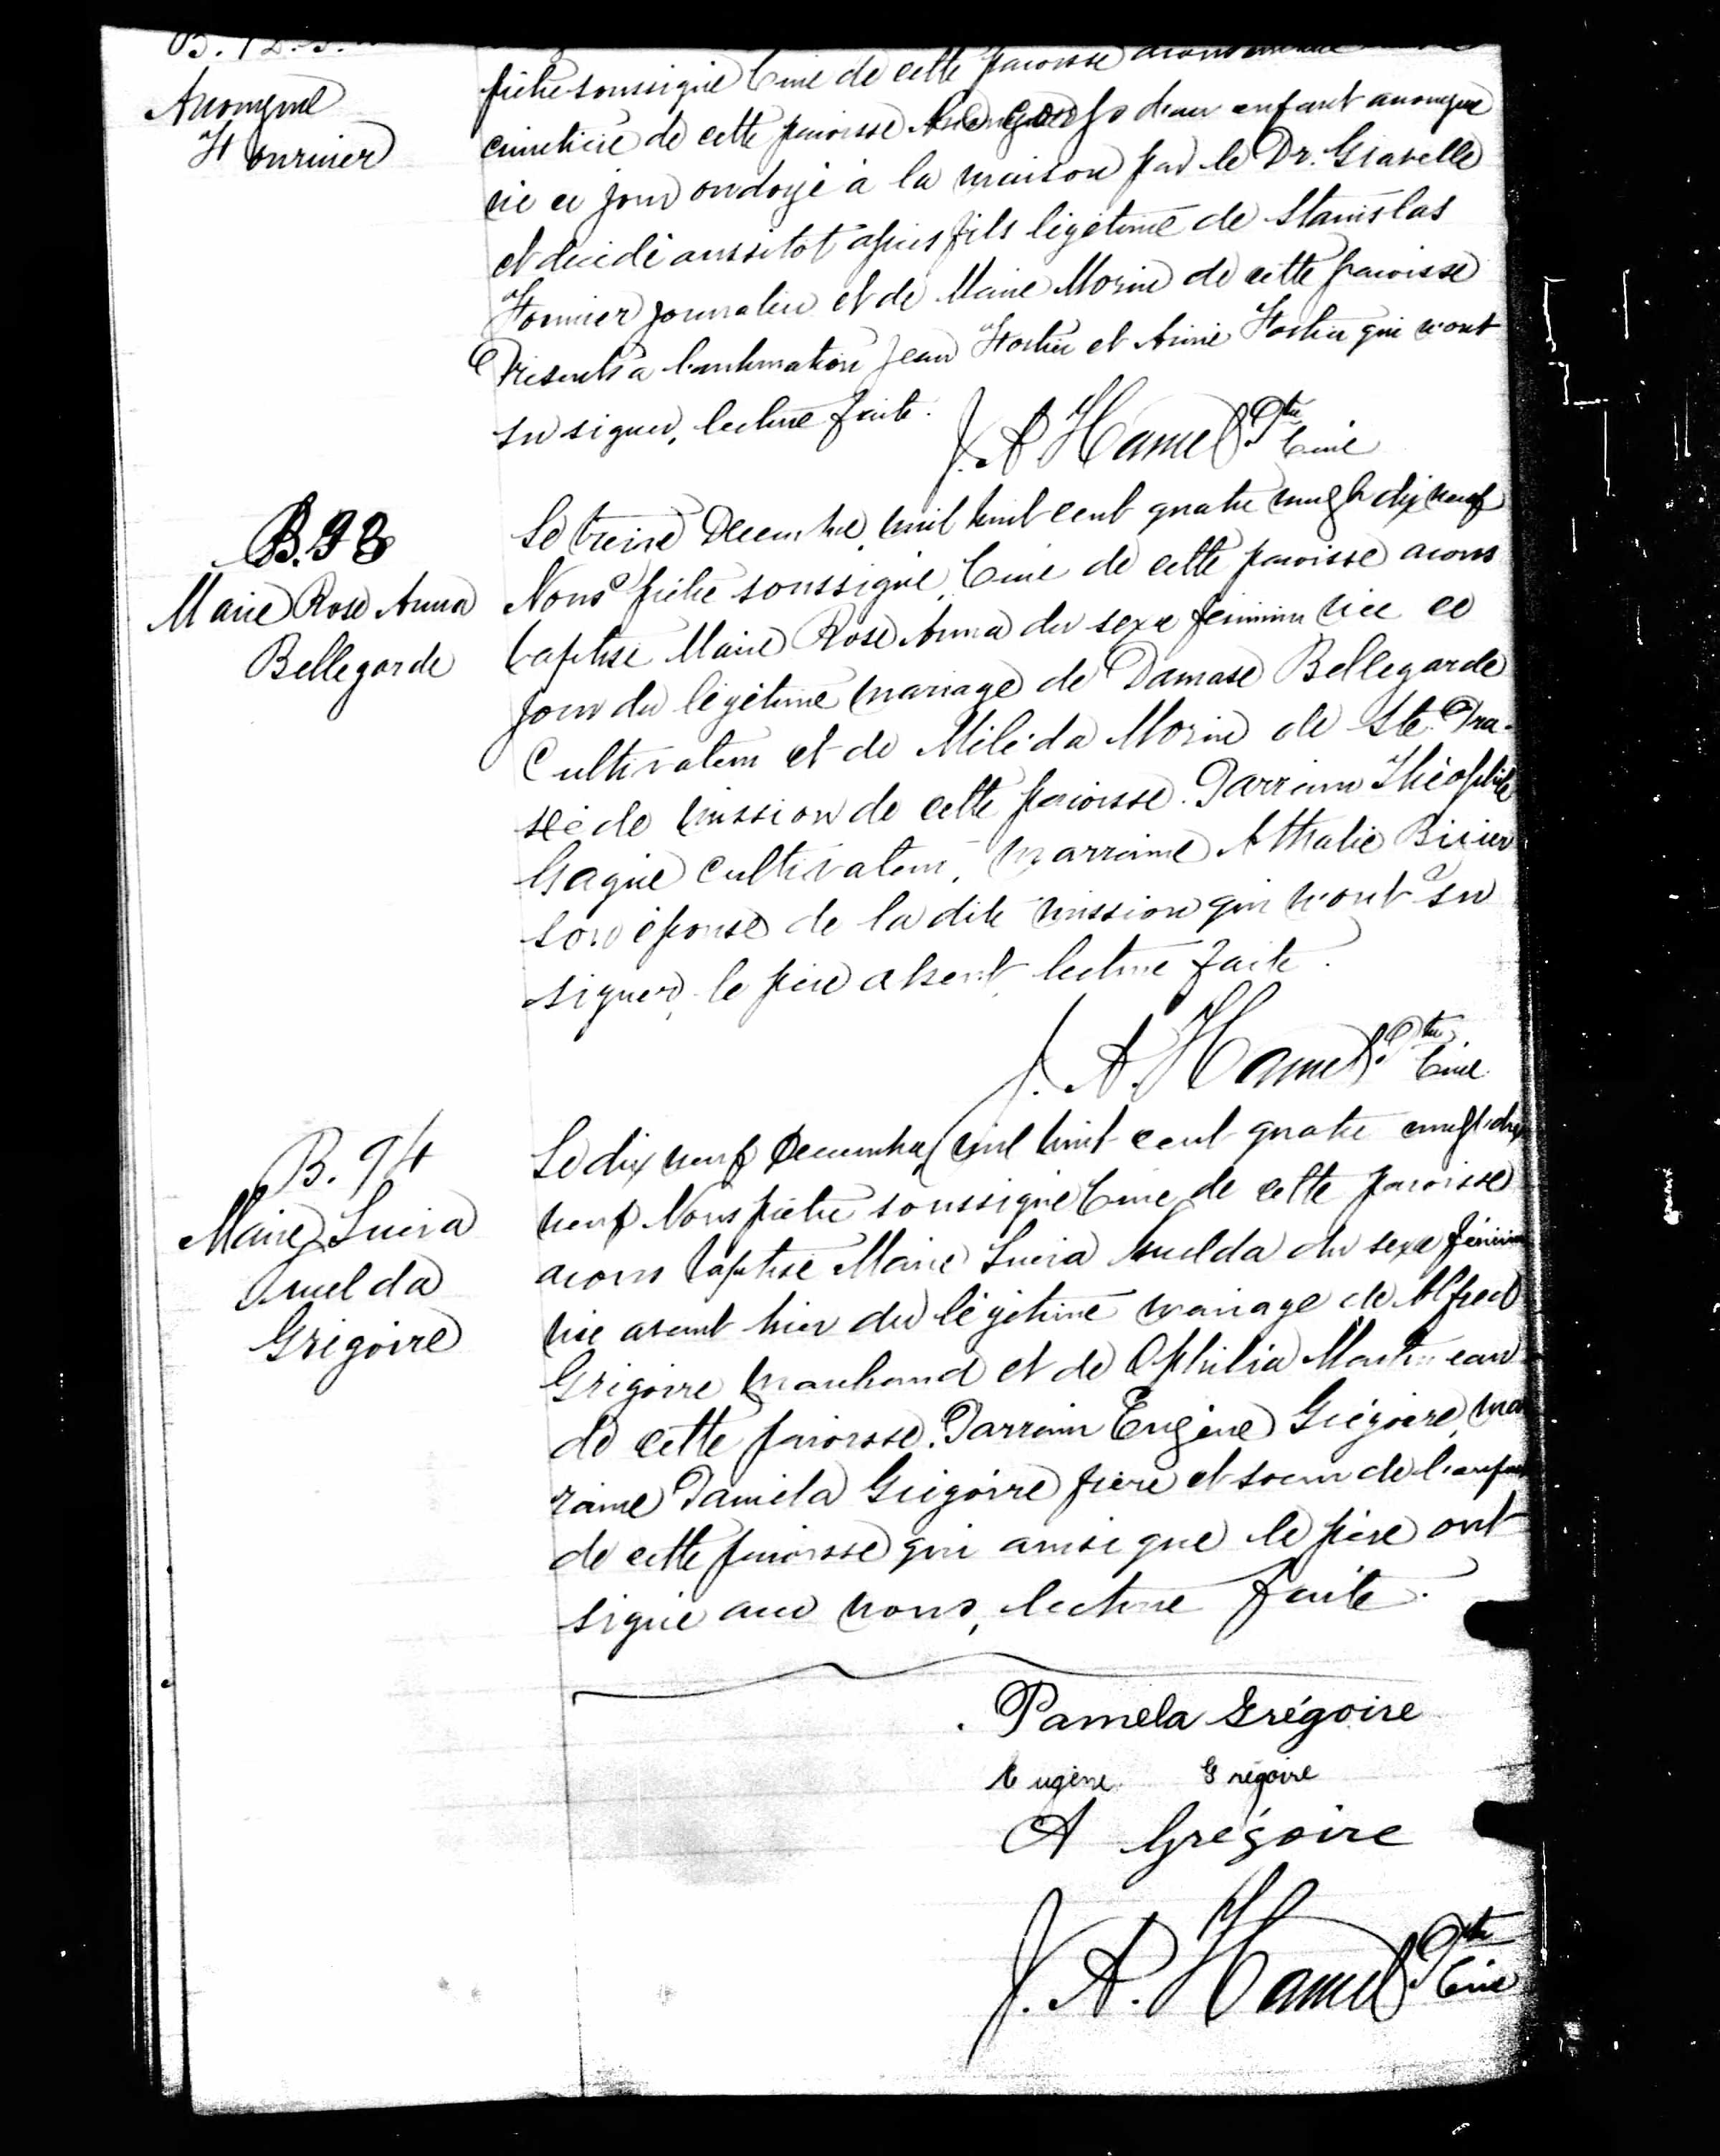 Anonyme
Fournier
prêtre soussigné Curé de cette paroisse avons inhumé
cimetière de cette paroisse le corps d'un enfant anonyme
né ce jour ondoyé à la maison par le Dr. Gravelle
et décédé aussitot après fils légitime de Stanislas
Fournier journalier et de Marie Morin de cette paroisse
Présents a l'inhumation Jean Fortier et Aimé Fortier qui n'ont
su signer, lecture faite.
J. A. Hamel Ptre
Curé
B. 93
Marie Rose Anna
Bellegarde
Le treize Decembre mil huit cent quatre vingt dix neuf
Nous prêtre soussigné, Curé de cette paroisse avons
baptisé Marie Rose Anna du sexe féminin née ce
jour du légitime mariage de Damase Bellegarde
Cultivateur et de Méléda Morin de Ste. Pra-
xède mission de cette paroisse. Parrain Théophile
Gagné Cultivateur, marraine Athalie
son épouse de la dite mission qui n'ont su
signer, le père absent, lecture faite.
J. A. Hamel Ptre
Curé
B. 94
Marie Lucia
Imelda
Grégoire
Le dix neuf Decembre mil huit cent quatre vingt dix
neuf Nous prêtre soussigné Curé de cette paroisse
avons baptisé Marie Lucia Imelda du sexe féminin
née avant hier du légitime mariage de Alfred
Grégoire marchand et de Ophilia Martineau
de cette paroisse. Parrain Eugène Grégoire, mar
raine Paméla Grégoire frère et soeur de l'enfant
de cette paroisse qui ainsi que le père ont
signé avec nous, lecture faite.
Pamela Grégoire
Eugène Grégoire
A Grégoire
J. A. Hamel Ptre
Curé